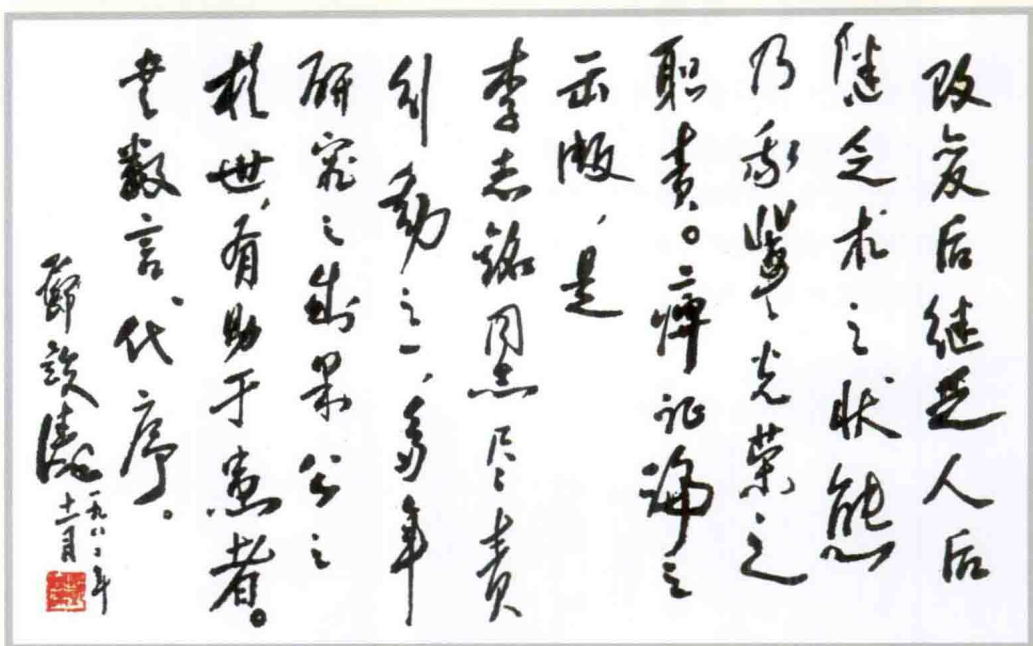 改变后继乏人后
继乏术之状态
乃我辈之光荣之
职责。痹证论之
出版，是
李志铭同志尽责
行动之一，多年
研究之成果公之
於世，有助于患者。
书数言、代序。
邓铁涛
一九八二年
十一月